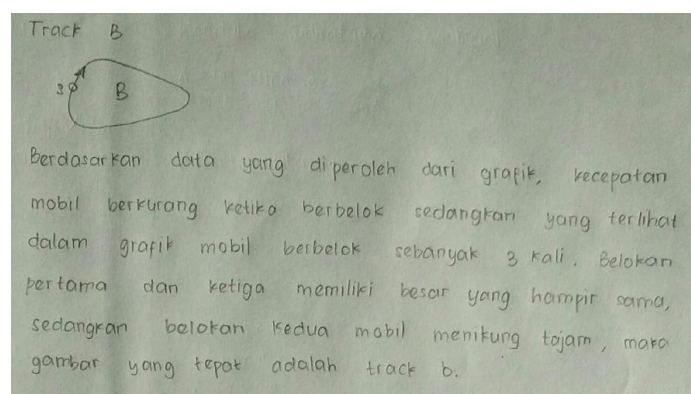 Track B
S
B
Berdasarkan data yang diperoleh dari grafik, kecepatan
mobil berkurang ketika berbelok sedangkan yang terlihat
dalam grafik mobil berbelok sebanyak 3 kali. Belokan
pertama dan ketiga memiliki besar yang hampir sama,
sedangkan belokan kedua mobil menikung tajam, maka
gambar yang tepat adalah track b.